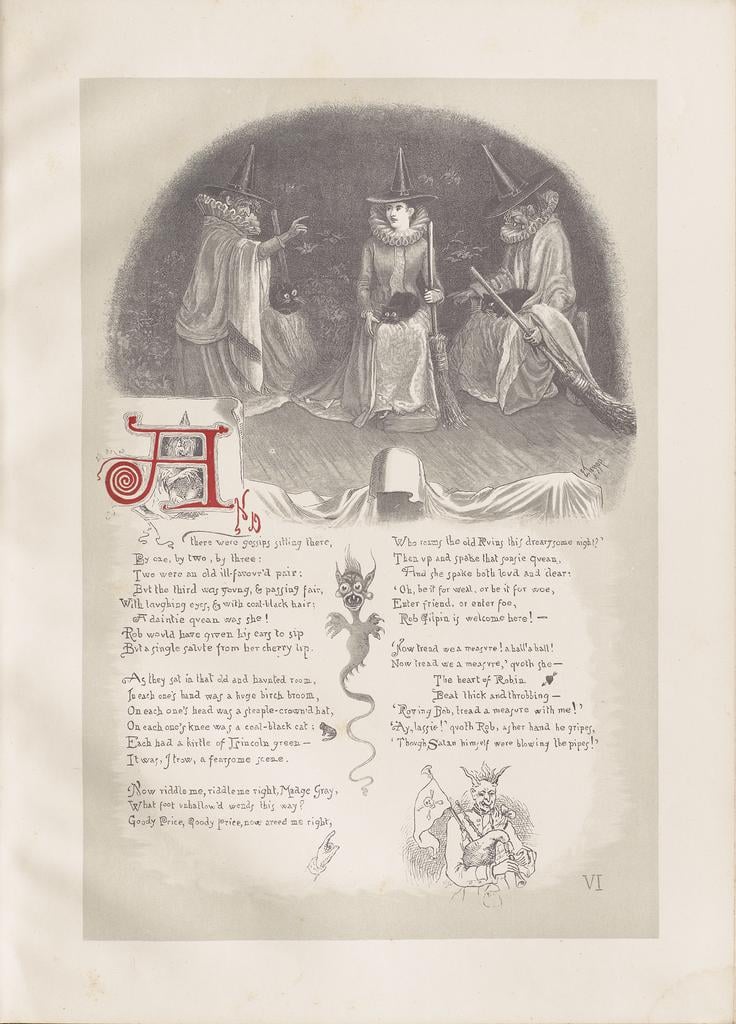 AND there were gossips sitting there,
By one, by two, by three:
Two were an old ill-favour'd pair;
But the third was young, & passing fair,
With laughing eyes, & with coal-black hair;
A daintie quean was she!
Rob would have given his ears to sip
But a single salute from her cherry lip.
As they sat in that old and haunted room,
In each one's hand was a huge birch broom,
On each one's head was a steeple-crown'd hat,
On each one's knee was a coal-black cat;
Each had a kirtle of Lincoln green—
It was, I trow, a fearsome scene.
Now riddle me, riddle me right, Madge Gray,
What foot unhallow'd wends this way?
Goody Price, Goody Price, now areed me right,
Who roams the old Ruins this drearysome night?'
Then up and spake that sonsie quean,
And she spake both loud and clear:
'Oh, be it for weal, or be it for woe,
Enter friend, or enter foe,
Rob Gilpin is welcome here!—
'Now tread we a measure! a hall a hall!
Now tread we a measure,' quoth she—
The heart of Robin
Beat thick and throbbing—
'Roving Bob, tread a measure with me!'
'Ay, lassie!' quoth Rob, as her hand he gripes,
'Though Satan himself were blowing the pipes!'
VI